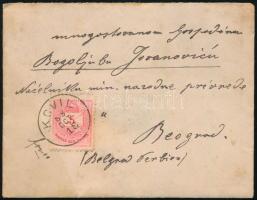 mnogostovanom Gospodinu
Bogoljubu Jovanoviću
Načelniku min. narodne privrede
"
Beograd.
(Belgrad Serbien)
KOVIL